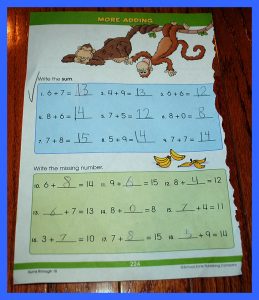 MORE ADDING
Write the sum.
1. 6 + 7 = 13 2. 4 + 9 = 13 3. 6 + 6 = 12
4. 8 + 6 = 14 5. 7 + 5 = 12 6. 8 + 0 = 8
7. 7 + 8 = 15 8. 5 + 9 = 14 9. 7 + 7 = 14
Write the missing number.
10. 6 + 8 = 14 11. 9 + 6 = 15 12. 8 + 4 = 12
13. 6 + 7 = 13 14. 8 + 0 = 8 15. 7 + 4 = 11
16. 3 + 7 = 10 17. 7 + 8 = 15 18. 5 + 9 = 14
224
Sums through
School Zone Publishing Company